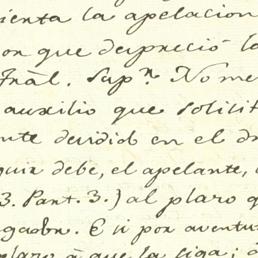 ienta la apelacion
on que despreció la
Fral. Sap.n No me
auxilio que solicit
nte decidiob en el dr
quir debe, el apelante,
3. Part. 3.) al plazo q
gaobr. E ii por aventur
plazo á que la siga; ó